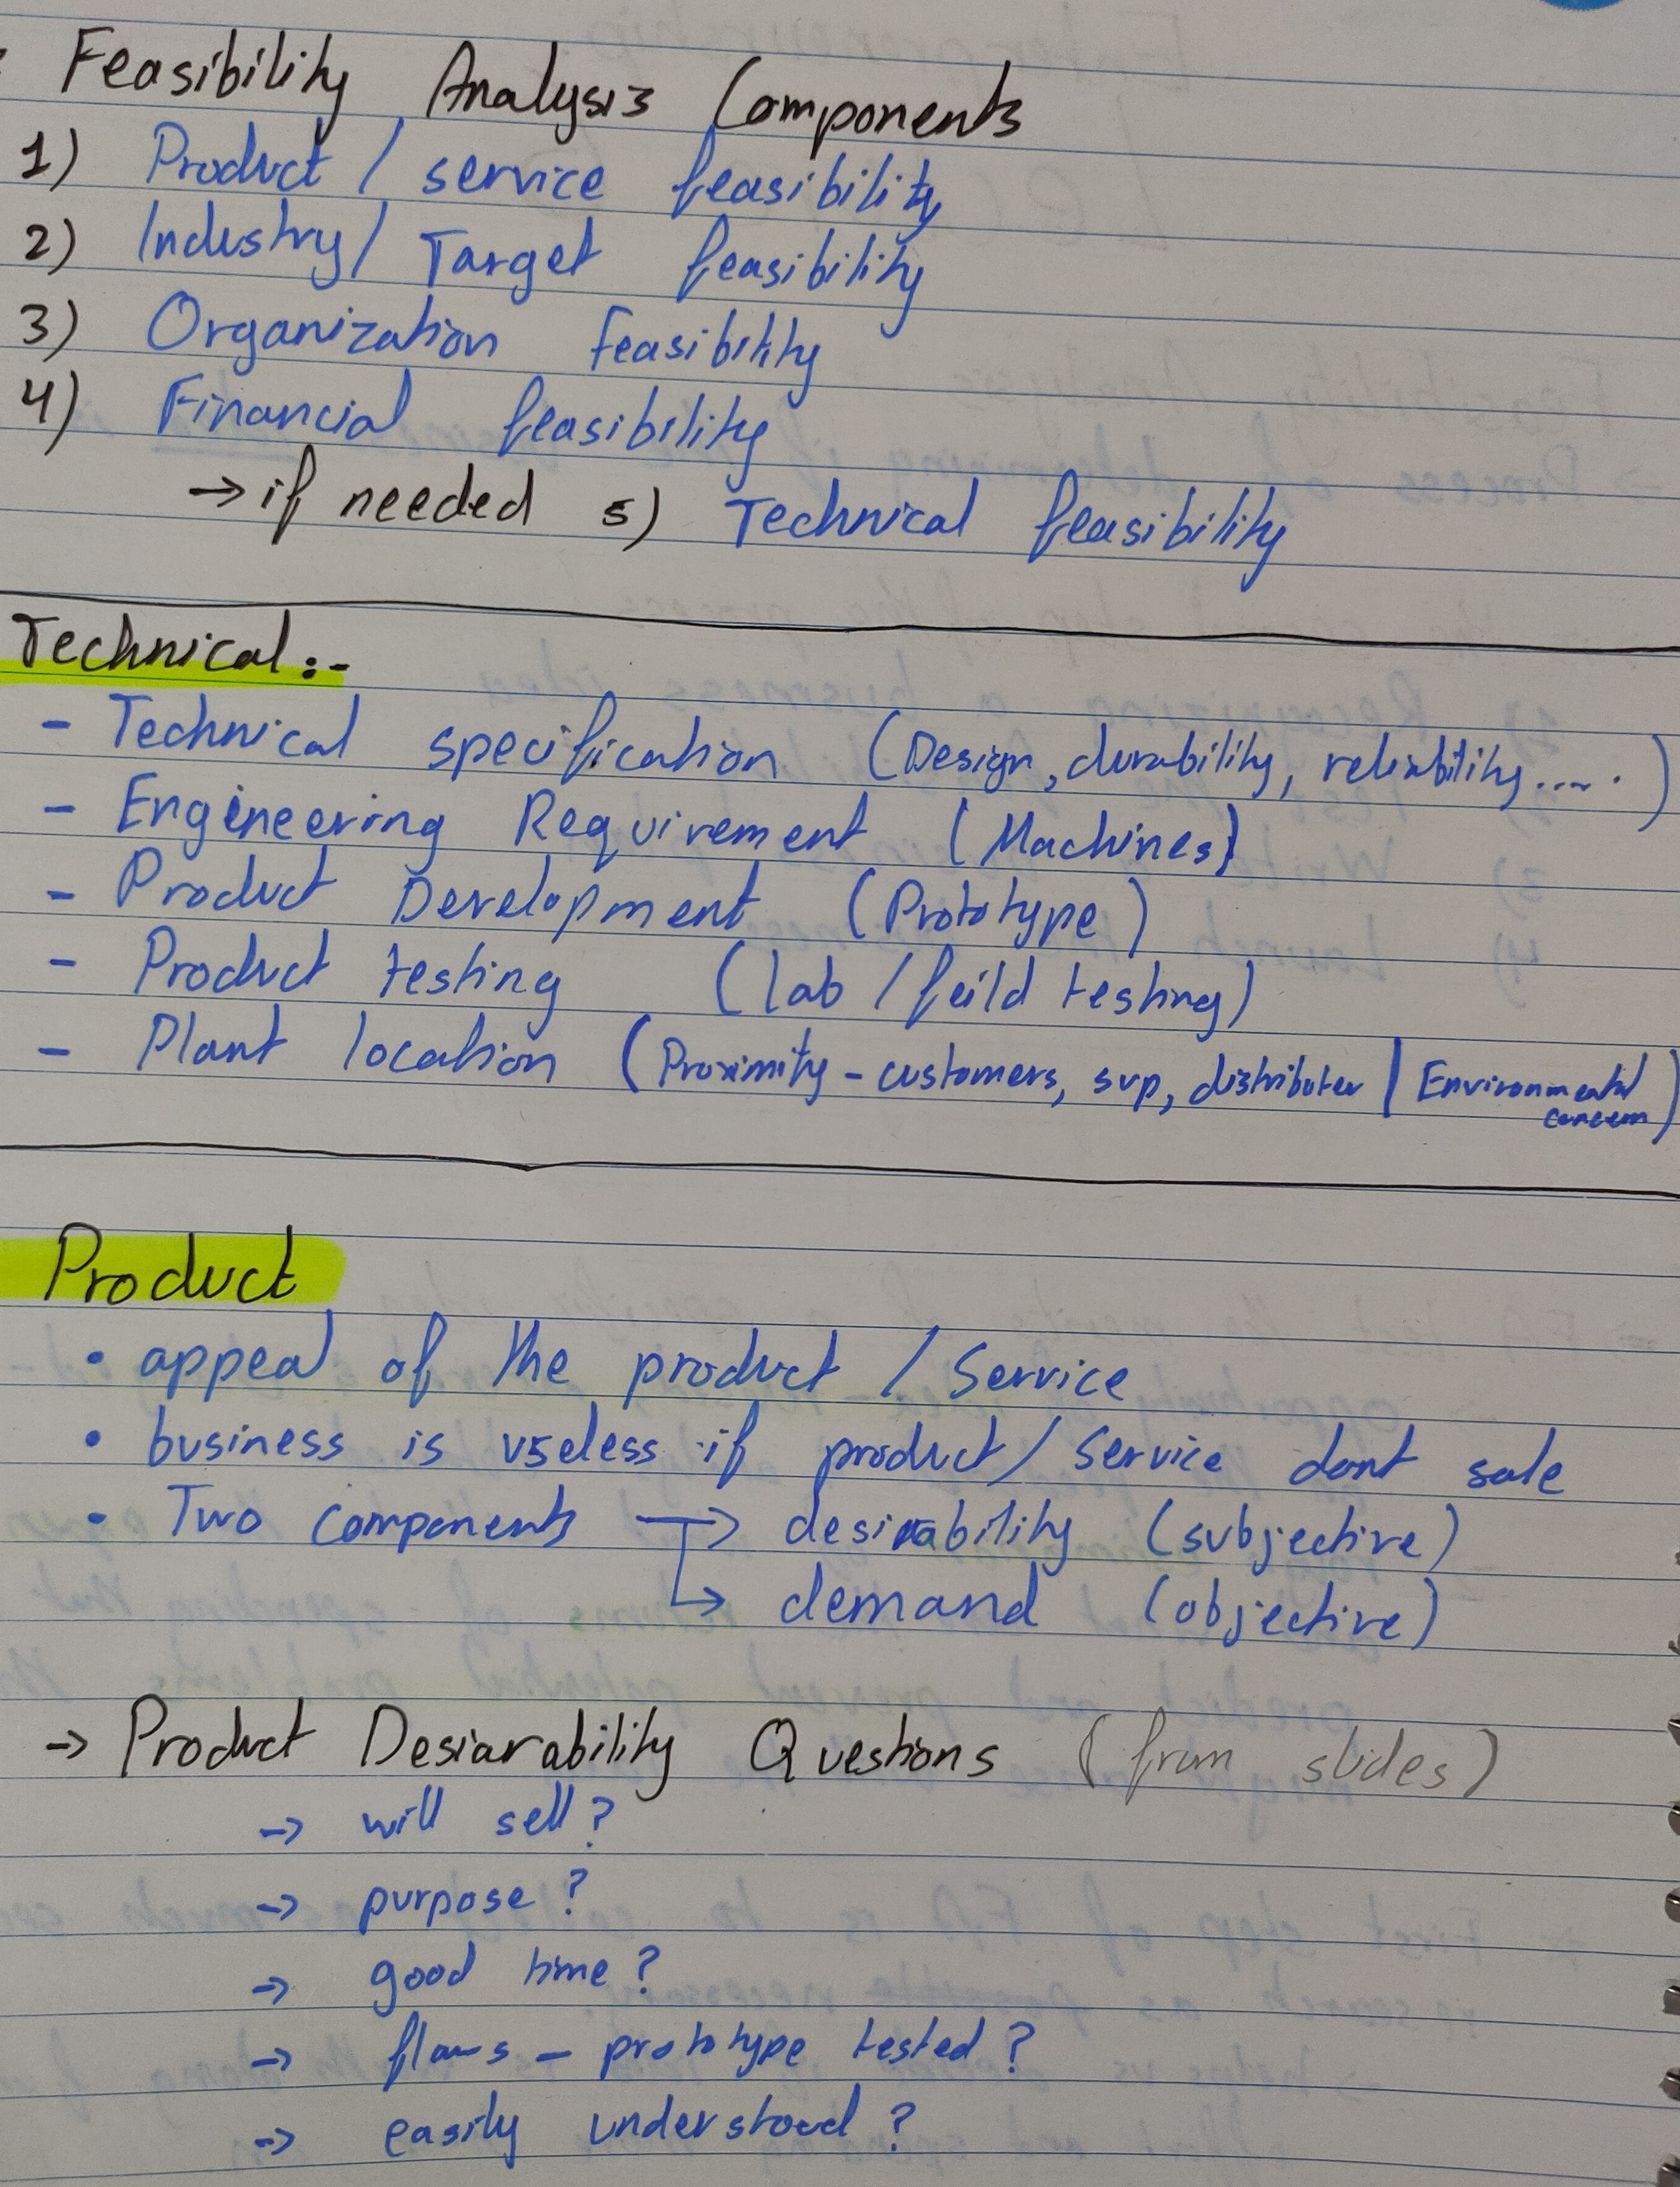 Feasibility Analysis Components
1) Product / service feasibility
2) Industry / Target feasibility
3) Organization Feasibility
4) Financial feasibility
→ if needed 5) Technical feasibility
Technical :-
- Technical specification (Design, durability, reliability..... )
- Engineering Requirement (Machines)
- Product Development (Prototype)
- Product testing (lab / feild testing)
- Plant location (Proximity - customers, sup, distributer | Environmental
concern)
Product
• appeal of the product / Service
• business is useless if product / Service dont sale
• Two components → desirability (subjective)
↳ demand (objective)
→ Product Desiarability Questions (from slides)
→ will sell?
→ purpose?
→ good time?
→ flaws - prototype tested?
→ easily understood?